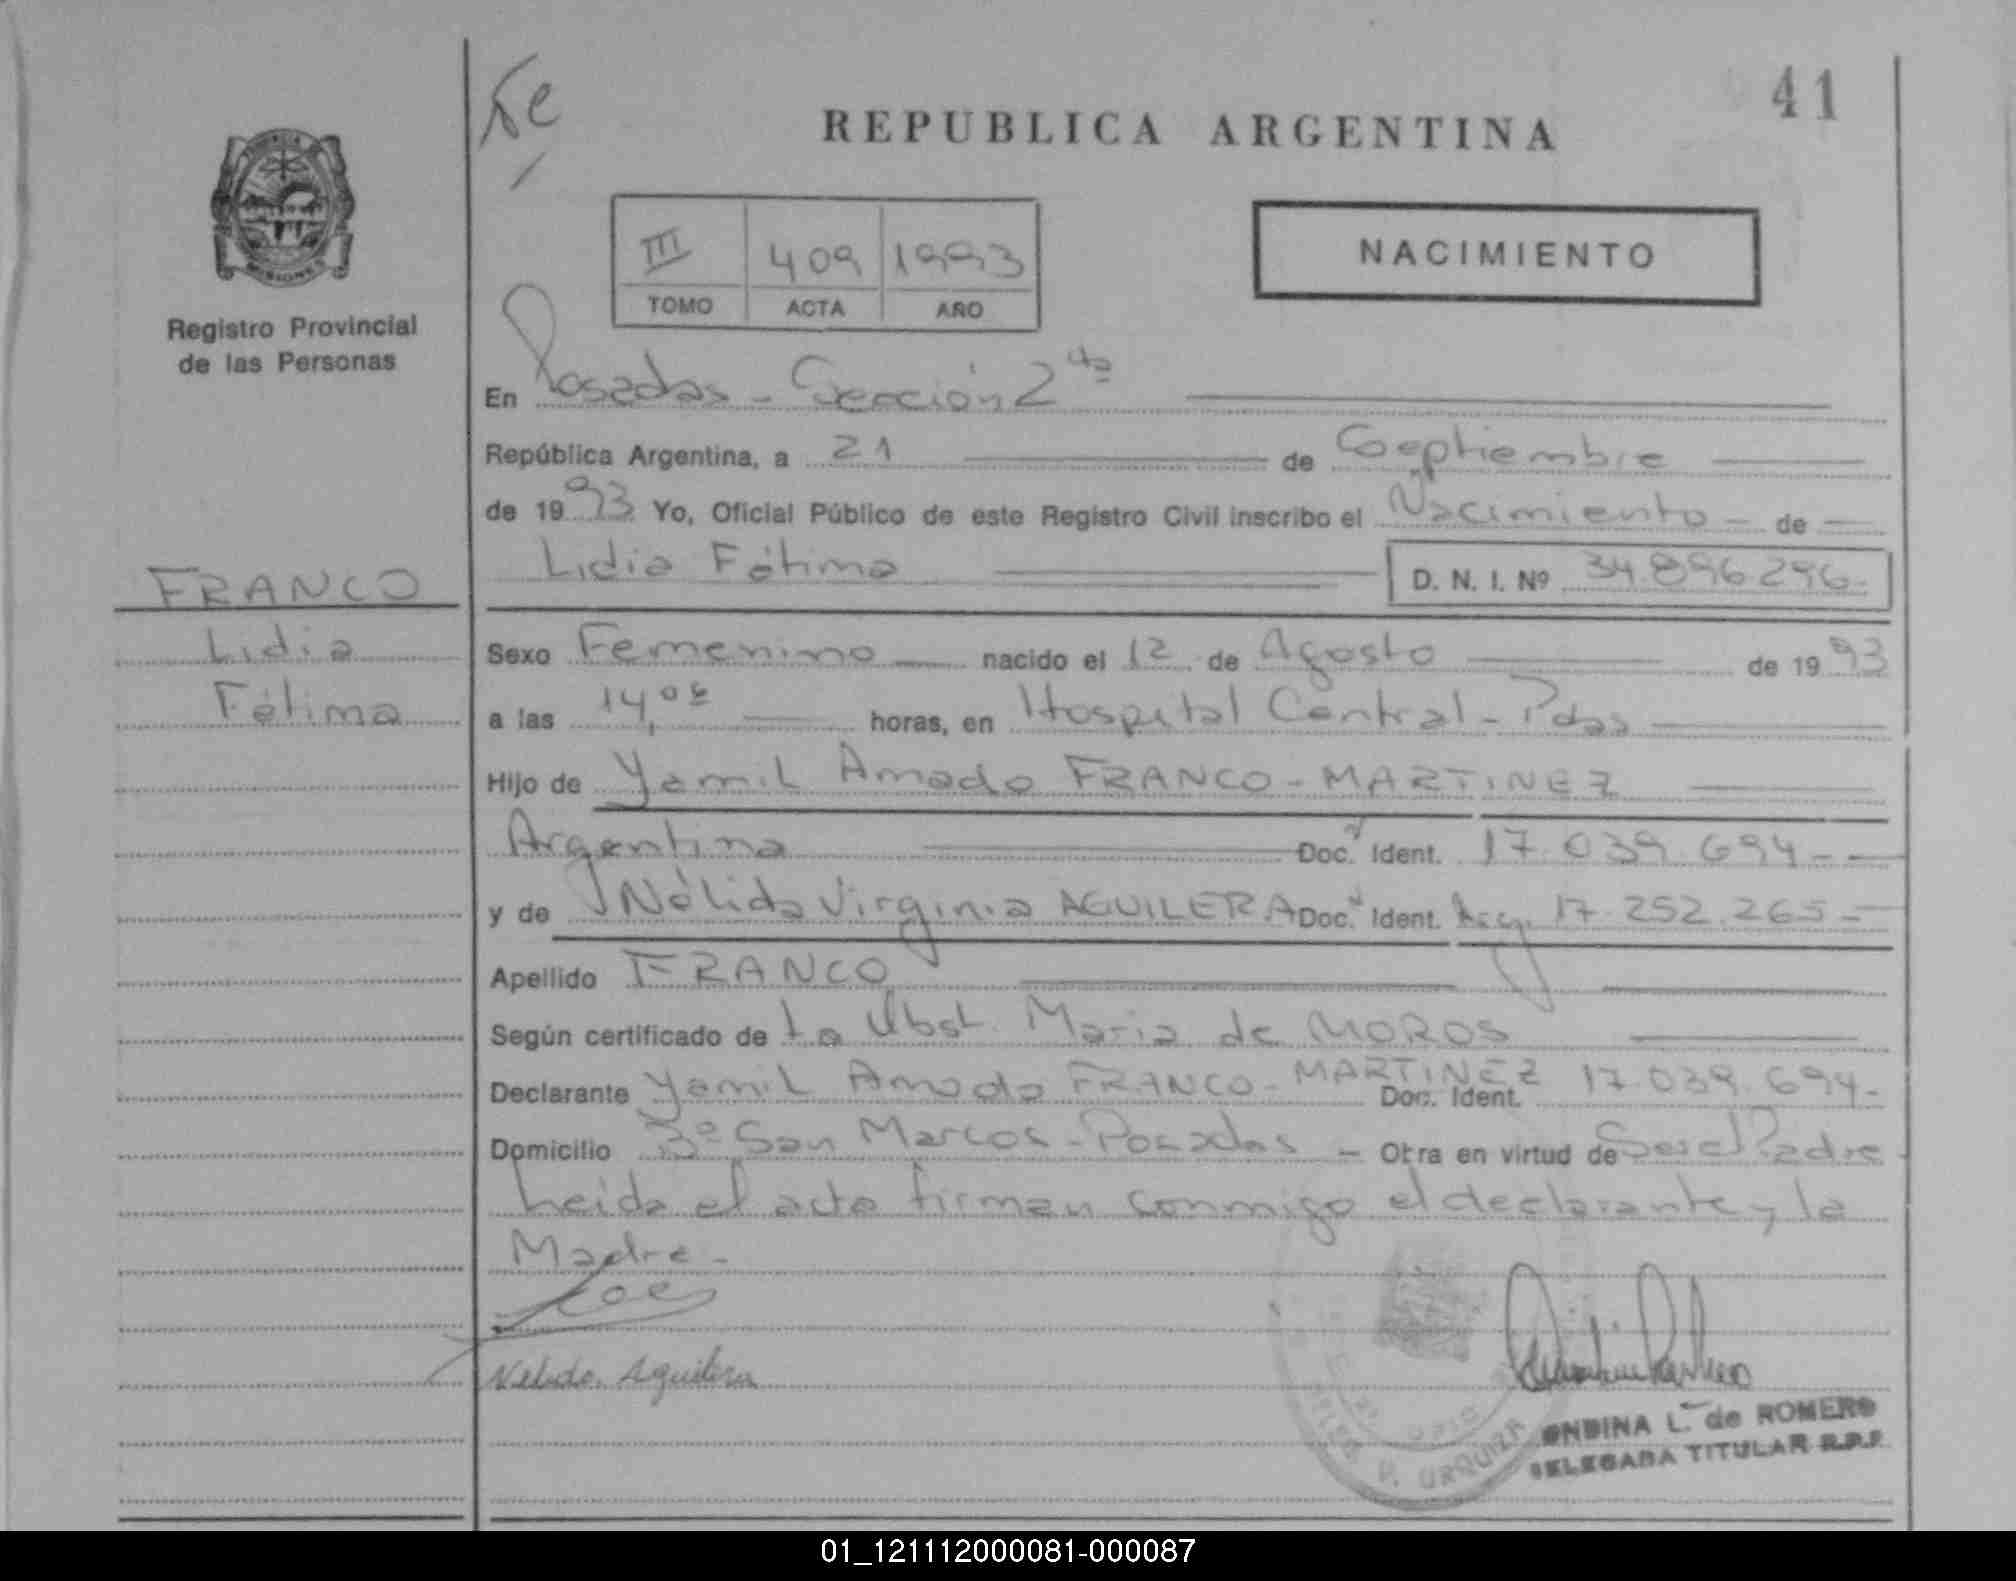 41
REPUBLICA ARGENTINA
NACIMIENTO
III 409 1993
TOMO ACTA AÑO
MISIONES
Registro Provincial
de las Personas
En Posadas - Sección 2da
República Argentina, a 21 de Septiembre
de 1993 Yo, Oficial Público de este Registro Civil inscribo el Nacimiento - de
Lidia Fátima D. N. I. Nº 34.896.296-
FRANCO
Lidia
Fátima
Sexo Femenino nacido el 12 de Agosto de 1993
a las 14,05 horas, en Hospital Central - Pdas
Hijo de Yamil Amado FRANCO - MARTINEZ
Argentina Doc. Ident. 17.039.694 -
y de Nélida Virginia AGUILERA Doc. Ident. Arg. 17.252.265 -
Apellido FRANCO
Según certificado de La Obst. Maria de MOROS
Declarante Yamil Amado FRANCO - MARTINEZ Doc. Ident. 17.039.694-
Domicilio Bº San Marcos - Posadas - Otra en virtud de Ser el Padre
Leida el acta firman conmigo el declarante y la
Madre -
Nelida Aguilera
URQUIZA
ONDINA L. de ROMERO
DELEGADA TITULAR R.P.P.
01_121112000081-000087